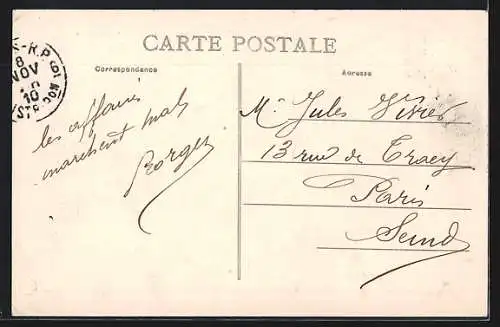 CARTE POSTALE
Correspondance
Adresse
les affaires
marchent mal
Borges
M. Jules Vivier
13 rue de Tracy
Paris
Seine
8
NOV
10